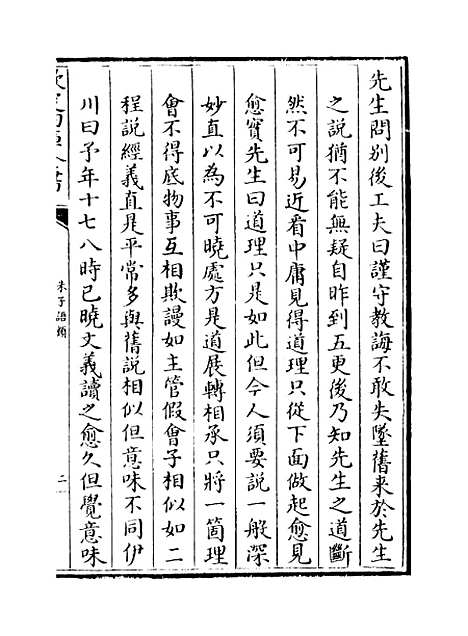 先生問別後工夫曰謹守教誨不敢失墜舊来於先生
之說猶不能無疑自昨到五更後乃知先生之道斷
然不可易近看中庸見得道理只從下面做起愈見
愈實先生曰道理只是如此但今人須要說一般深
妙直以為不可曉處方是道展轉相承只將一箇理
會不得底物事互相欺謾如主管假會子相似如二
程說經義直是平常多與舊說相似但意味不同伊
川曰予年十七八時已曉文義讀之愈久但覺意味
朱子語類
二